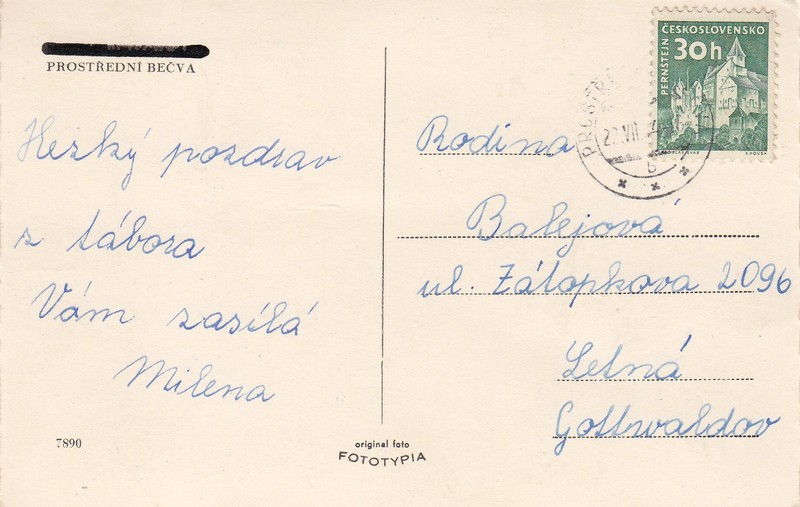 PROSTŘEDNÍ BEČVA
Hezký pozdrav
z tábora
Vám zasílá
Milena
7890
original foto
FOTOTYPIA
ČESKOSLOVENSKO
PERNŠTEJN
30h
22.VII
b
Rodina
Balejová
ul. Zálopkova 2096
Letná
Gottwaldov